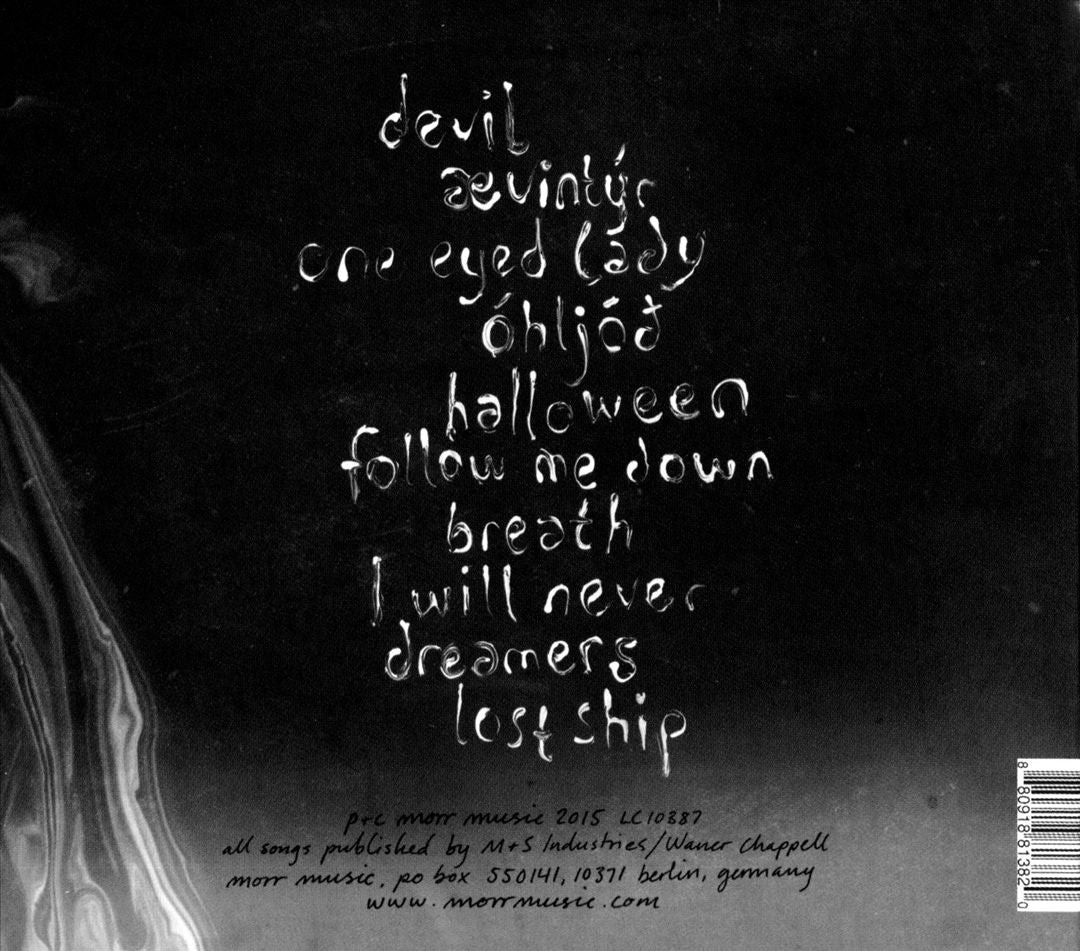 devil
ævintýr
one eyed lády
óhljóð
halloween
follow me down
breath
I will never
dreamers
lost ship
p+c morr music 2015 LC10387
all songs published by M+S Industries/Waner chappell
morr music, po box 550141, 10371 berlin, germany
www.morrmusic.com
8 80918 81382 0